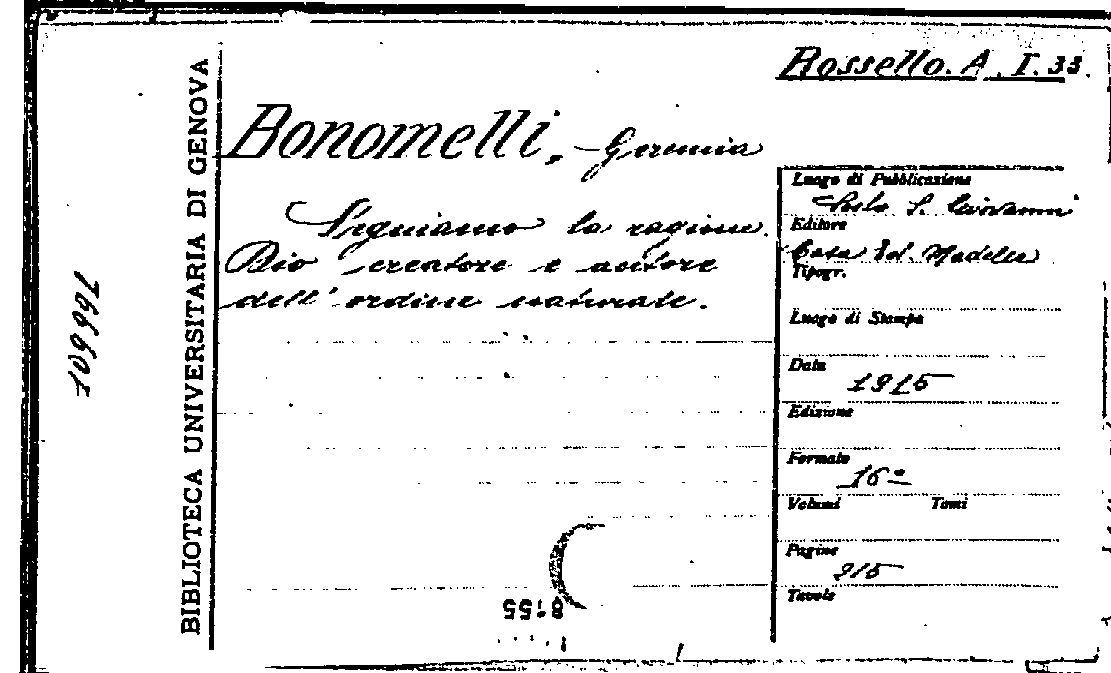 Rossello. A. I. 33.
BIBLIOTECA UNIVERSITARIA DI GENOVA
Bonomelli, Geremia
Seguiamo la ragione.
Dio creatore e autore
dell'ordine naturale.
Luogo di Pubblicazione
Sesto S. Giovanni
Editore
Casa Ed. Madella
Tipogr.
Luogo di Stampa
Data
1915
Edizione
Formato
16º
Volumi Tomi
Pagine
215
Tavole
109976
8155